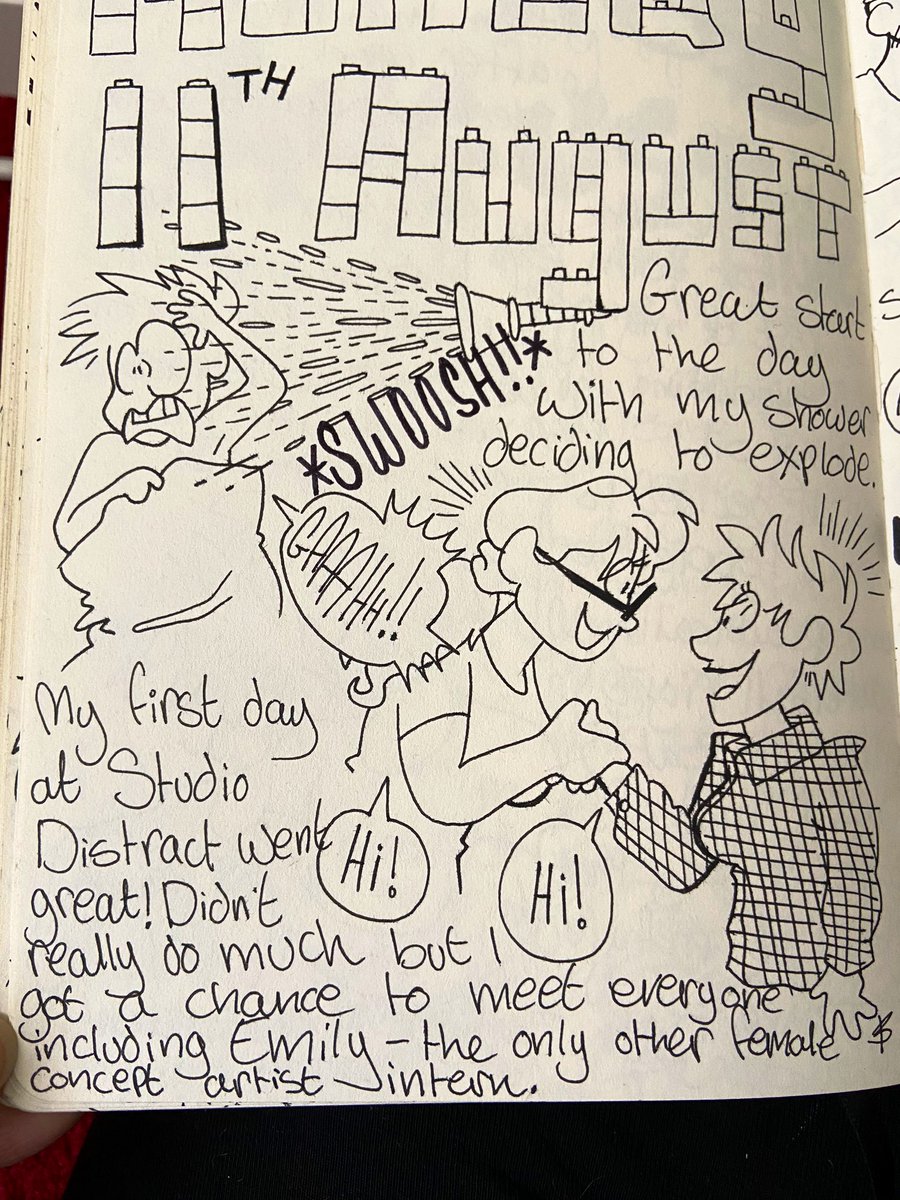 11TH August
Great start
to the day
with my shower
deciding to explode.
*SWOOSH!!*
GAAAHH!!
My first day
at Studio
Distract went
great! Didn't
really do much but I
got a chance to meet everyone
including Emily - the only other female
concept artist intern.
Hi!
Hi!